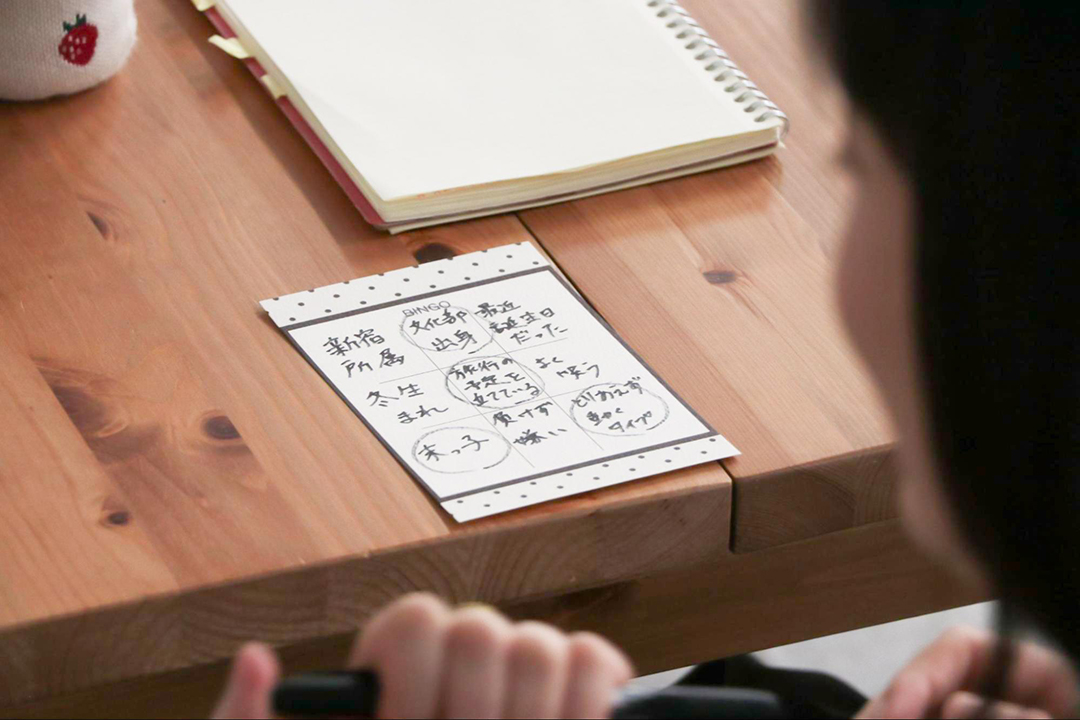 BINGO
新宿
所属
文化部
出身
最近
誕生日
だった
冬生
まれ
旅行の
予定を
立てている
よく
笑う
末っ子
負けず
嫌い
とりあえず
動く
タイプ